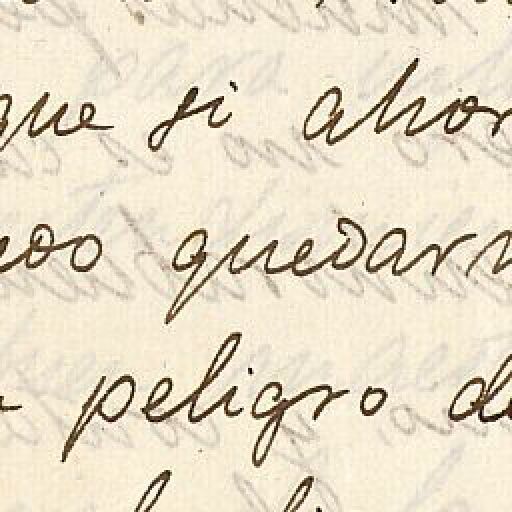 que si ahor
edo quedarm
peligro de